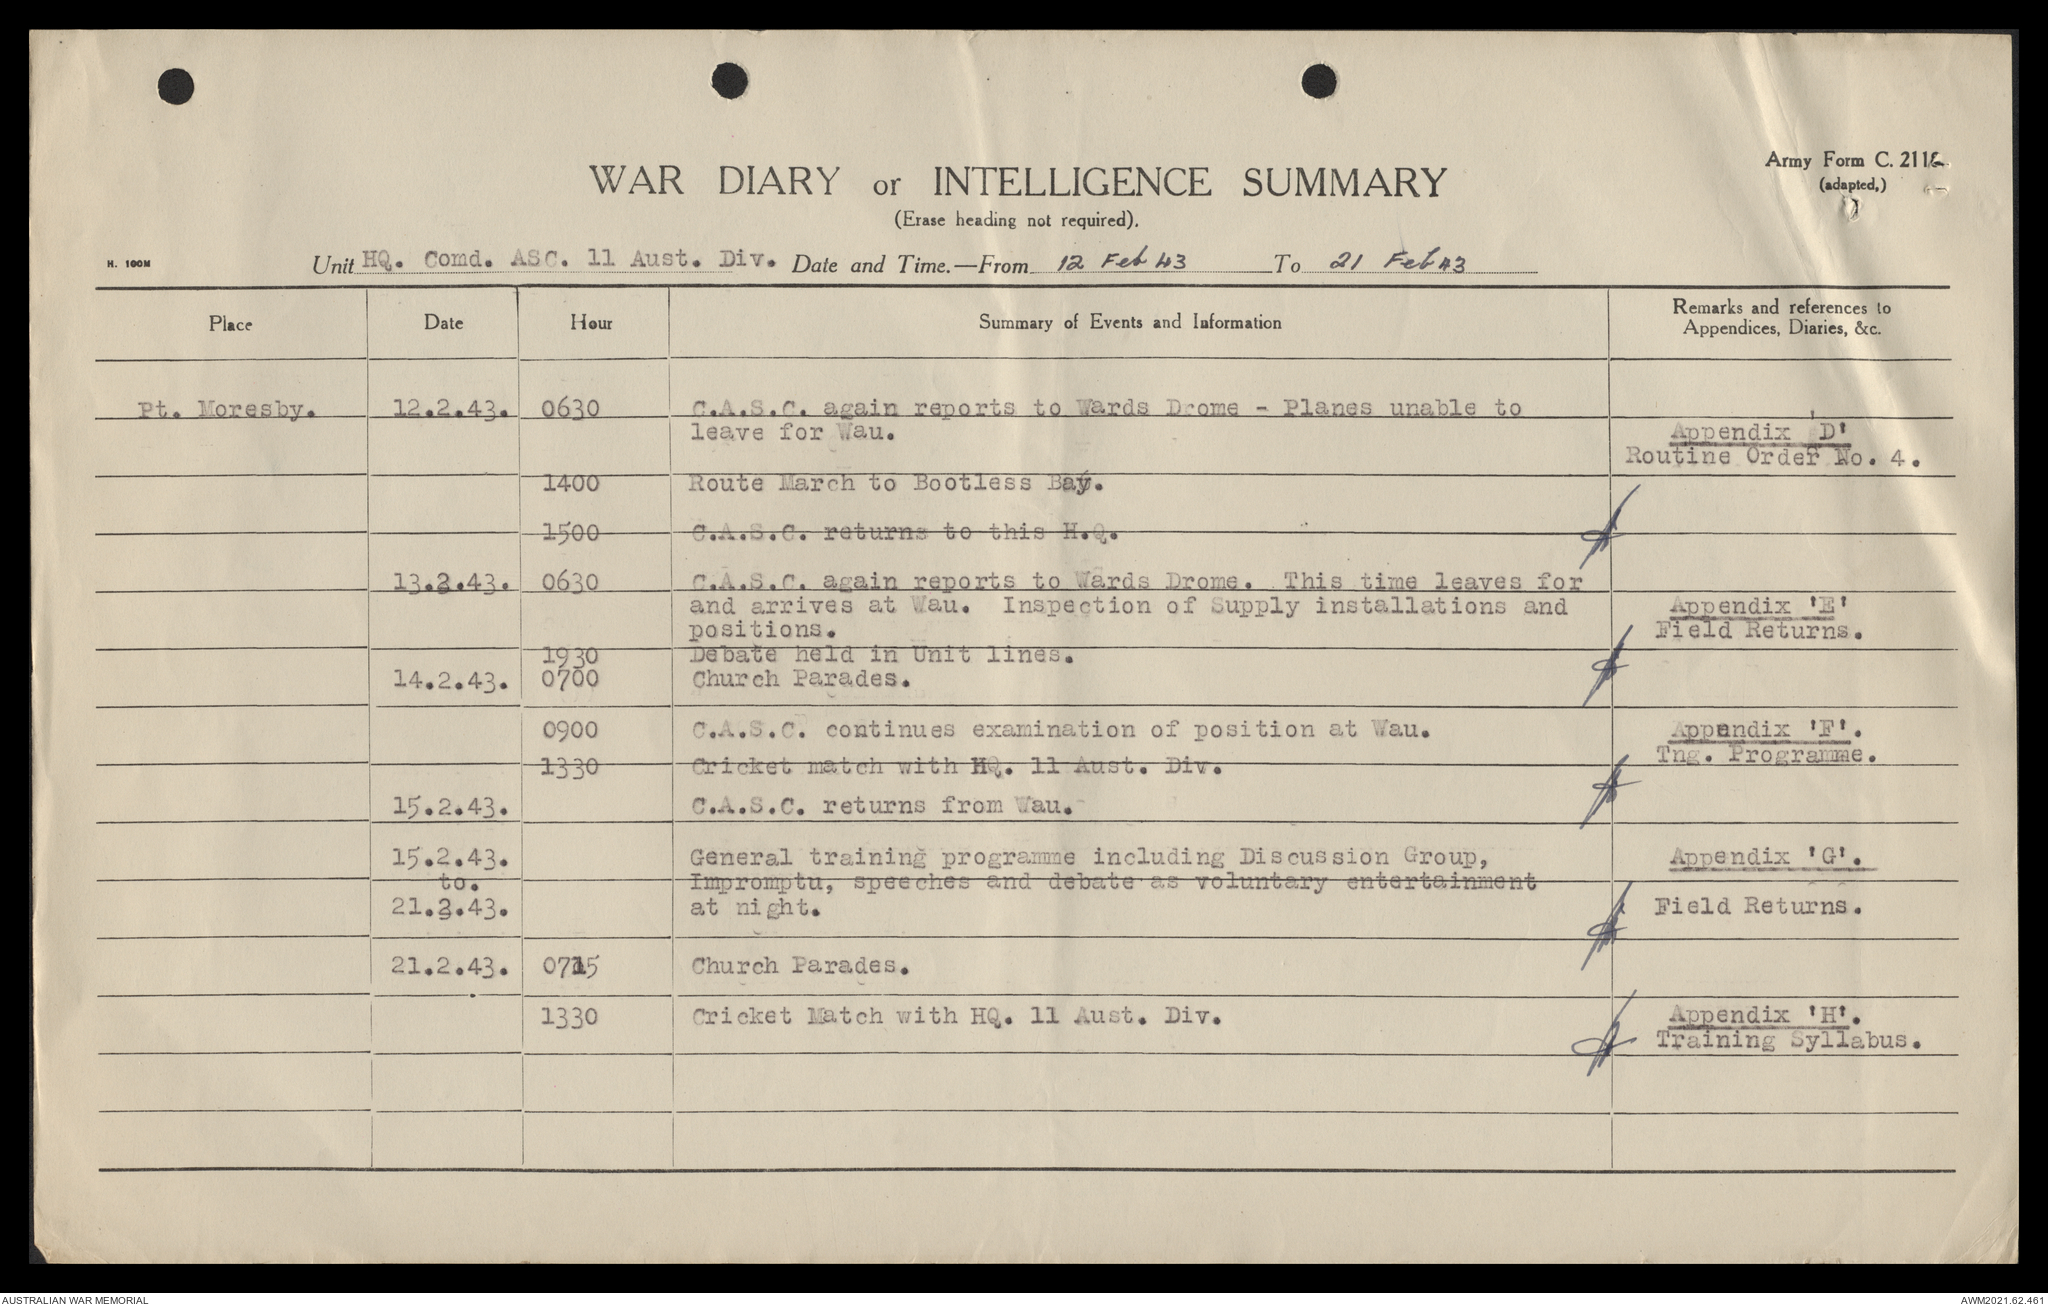 Army Form C. 2118
(adapted,)
WAR DIARY or INTELLIGENCE SUMMARY
(Erase heading not required).
H. 100M
Unit HQ. Comd. ASC. 11 Aust. Div. Date and Time.—From 12 Feb 43 To 21 Feb 43
Place Date Hour Summary of Events and Information Remarks and references to
Appendices, Diaries, &c.
Pt. Moresby. 12.2.43. 0630 C.A.S.C. again reports to Wards Drome - Planes unable to
leave for Wau. Appendix 'D'
Routine Order No. 4.
1400 Route March to Bootless Bay.
1500 C.A.S.C. returns to this H.Q.
13.2.43. 0630 C.A.S.C. again reports to Wards Drome. This time leaves for
and arrives at Wau. Inspection of Supply installations and Appendix 'E'
positions. Field Returns.
1930 Debate held in Unit lines.
14.2.43. 0700 Church Parades.
0900 C.A.S.C. continues examination of position at Wau. Appendix 'F'.
Tng. Programme.
1330 Cricket match with HQ. 11 Aust. Div.
15.2.43. C.A.S.C. returns from Wau.
15.2.43. General training programme including Discussion Group, Appendix 'G'.
to. Impromptu, speeches and debate as voluntary entertainment
21.2.43. at night. Field Returns.
21.2.43. 0715 Church Parades.
1330 Cricket Match with HQ. 11 Aust. Div. Appendix 'H'.
Training Syllabus.
AUSTRALIAN WAR MEMORIAL AWM2021.62.461